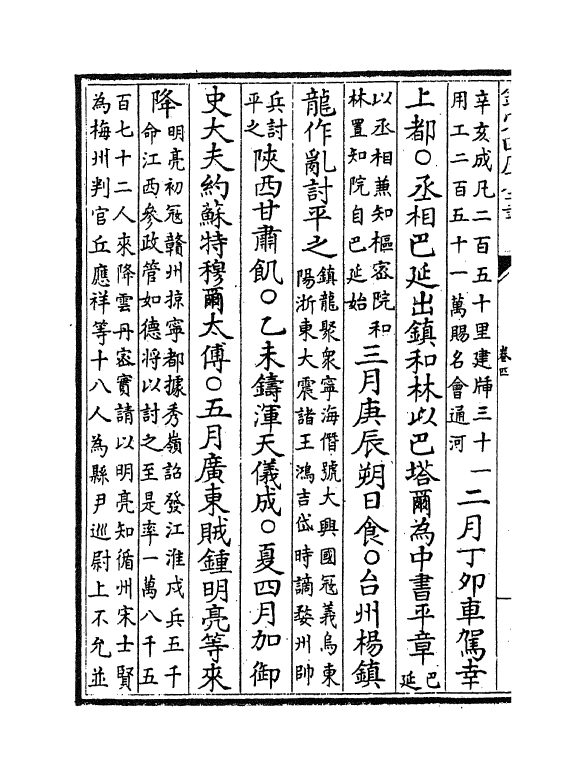 卷四
辛亥成凡二百五十里建牐三十一
用工二百五十一萬賜名會通河
二月丁夘車駕幸
上都○丞相巴延出鎮和林以巴塔爾為中書平章
巴
延
以丞相兼知樞宻院和
林置知院自巴延始
三月庚辰朔日食○台州楊鎮
龍作亂討平之
鎮龍聚衆寧海僭號大興國冦義烏東
陽浙東大震諸王鴻吉岱時謫婺州帥
兵討
平之
陜西甘肅飢○乙未鑄渾天儀成○夏四月加御
史大夫約蘇特穆爾太傅○五月廣東賊鍾明亮等來
降
明亮初冦贛州掠寧都據秀嶺詔發江淮戍兵五千
命江西參政管如德將以討之至是率一萬八千五
百七十二人來降雲丹宻實請以明亮知循州宋士賢
為梅州判官丘應祥等十八人為縣尹巡尉上不允並